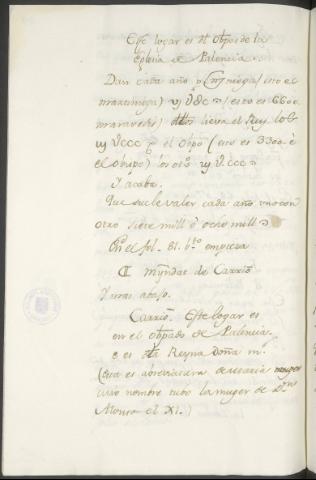 Este logar es dl obpo de la
Iglesia de Palencia.
Dan cada año por (esto es
martiniega) vj Udc (esto es 6600
maravedis) dellos lieva el Rey los
iij Uccc e el obpo (esto es 3300 e
el obispo) los otros iij Uccc
Y acaba.
Que suele valer cada año uno con
otro siete mill o ocho mill
En el fol. 81. bto empieza
Myndat de Carrio
Y mas abajo.
Carrio. Este logar es
en el obpado de Palencia,
e es dla Reyna Doña m.
(que es abreviatura de maria
cuyo nombre tubo la muger de Dn
Alonso el XI.)